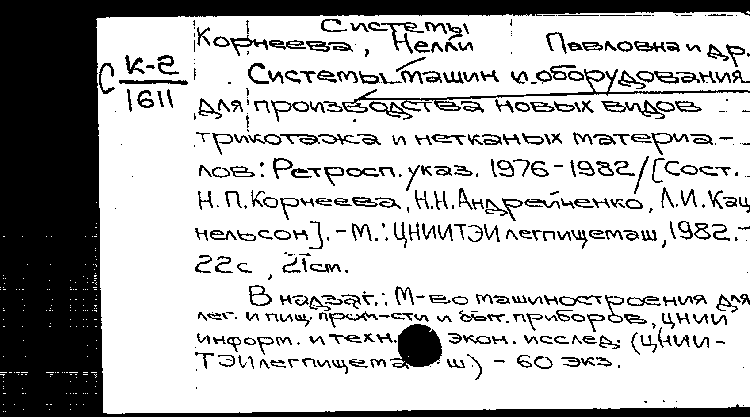 Системы
Корнеева, Нелли Павловна и др.
С К-2
1611
Системы машин и оборудования
для производства новых видов
трикотажа и нетканых материа-
лов: Ретросп. указ. 1976-1982/[Сост.
Н.П.Корнеева, Н.Н.Андрейченко, Л.И.Кац
нельсон].-М.: ЦНИИТЭИлегпищемаш, 1982.-
22с , 21см.
В надзаг.: М-во машиностроения для
лег. и пищ. пром-сти и быт. приборов, ЦНИИ
информ. и техн. экон. исслед. (ЦНИИ-
ТЭИлегпищема ш.) - 60 экз.